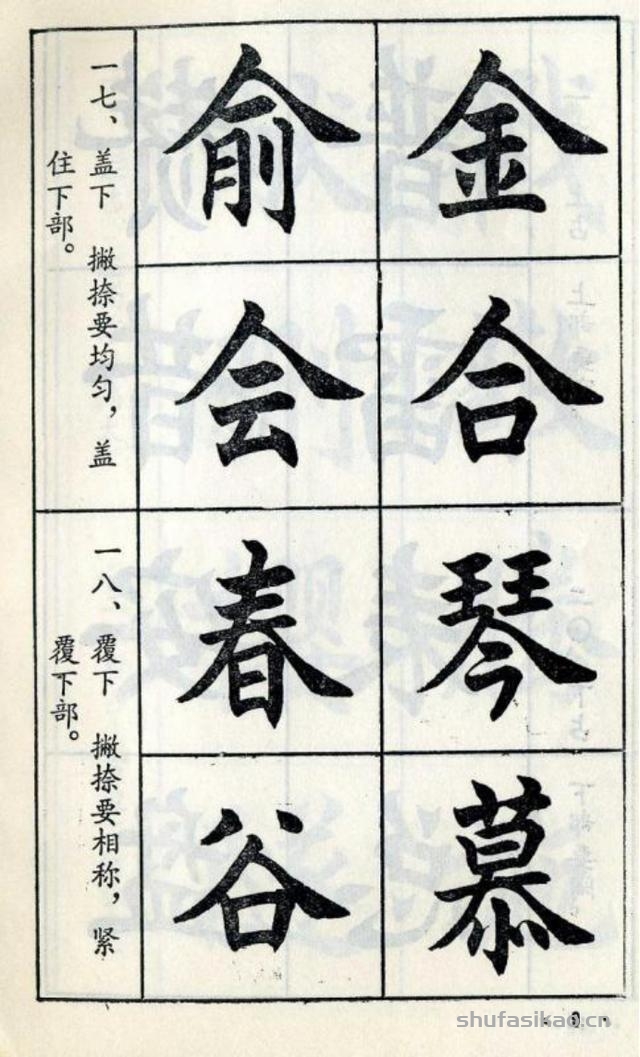 金
俞
合
会
一七、盖下 撇捺要均匀，盖
住下部。
琴
春
慕
谷
一八、覆下 撇捺要相称，紧
覆下部。
shufasikao.cn